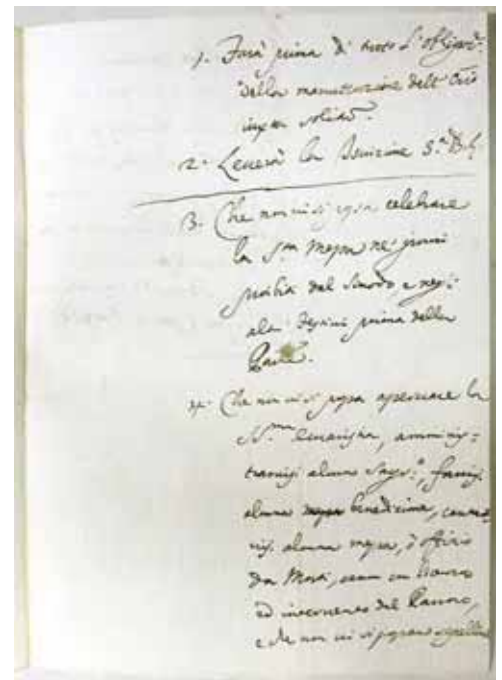 1. Farà prima di tutto l'obligaz.e
della manutenzione dell'Orio
iuxta solitū.
2. Leverà la Iscrizione S.a B.
3. Che non vi si possa celebrare
la S.ma Messa ne' giorni
proibiti dal Sinodo, e negl'
altri Festivi prima della
Parle.
4. Che non vi si possa conservare la
SS.ma Eucaristia, amminis-
trarvisi alcuno Sagr.o, farvisi
alcuna benedizione, cantar-
visi alcuna messa, ò offizio
da Morti, senza con licenza
ed intervento del Parroco,
e che non vi si possano seppellire